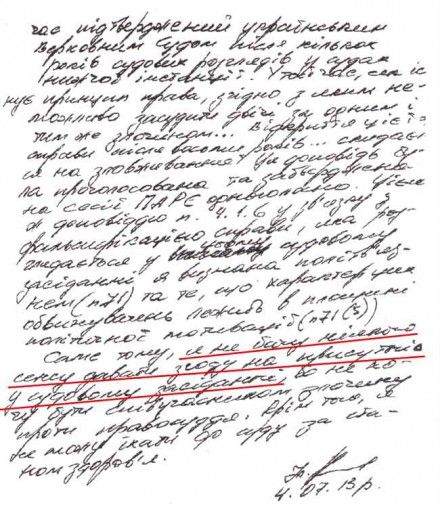 час підтверджений українським
Верховним судом після кількох
років судових розглядів у судах
нижчої інстанції. У той час, як іс-
нує принцип права, згідно з яким не-
можливо засудити двічі за одним і
тим же злочином... Відкриття цієї
справи після восьми років... скидаєть-
ся на зловживання". Ця доповідь бу-
ла проголосована та затверджена
на сесії ПАРЄ одноголосно. Цією
ж доповіддю п. 4.1.6 у зв'язку з
фальсифікацією справи, яка роз-
глядається у цьому судовому
засіданні я визнана політв'яз-
нем (п 71) та те, що характер цих
обвинувачень лежить в площині
політичної мотивації (п 71 (5))
Саме тому, я не бачу ніякого
сенсу давати згоду на присутність
у судовому засіданні бо не хо-
чу бути співучасником злочину
проти правосуддя. Крім того, я
не можу їхати до суду за ста-
ном здоров'я.
4.07.13 р.